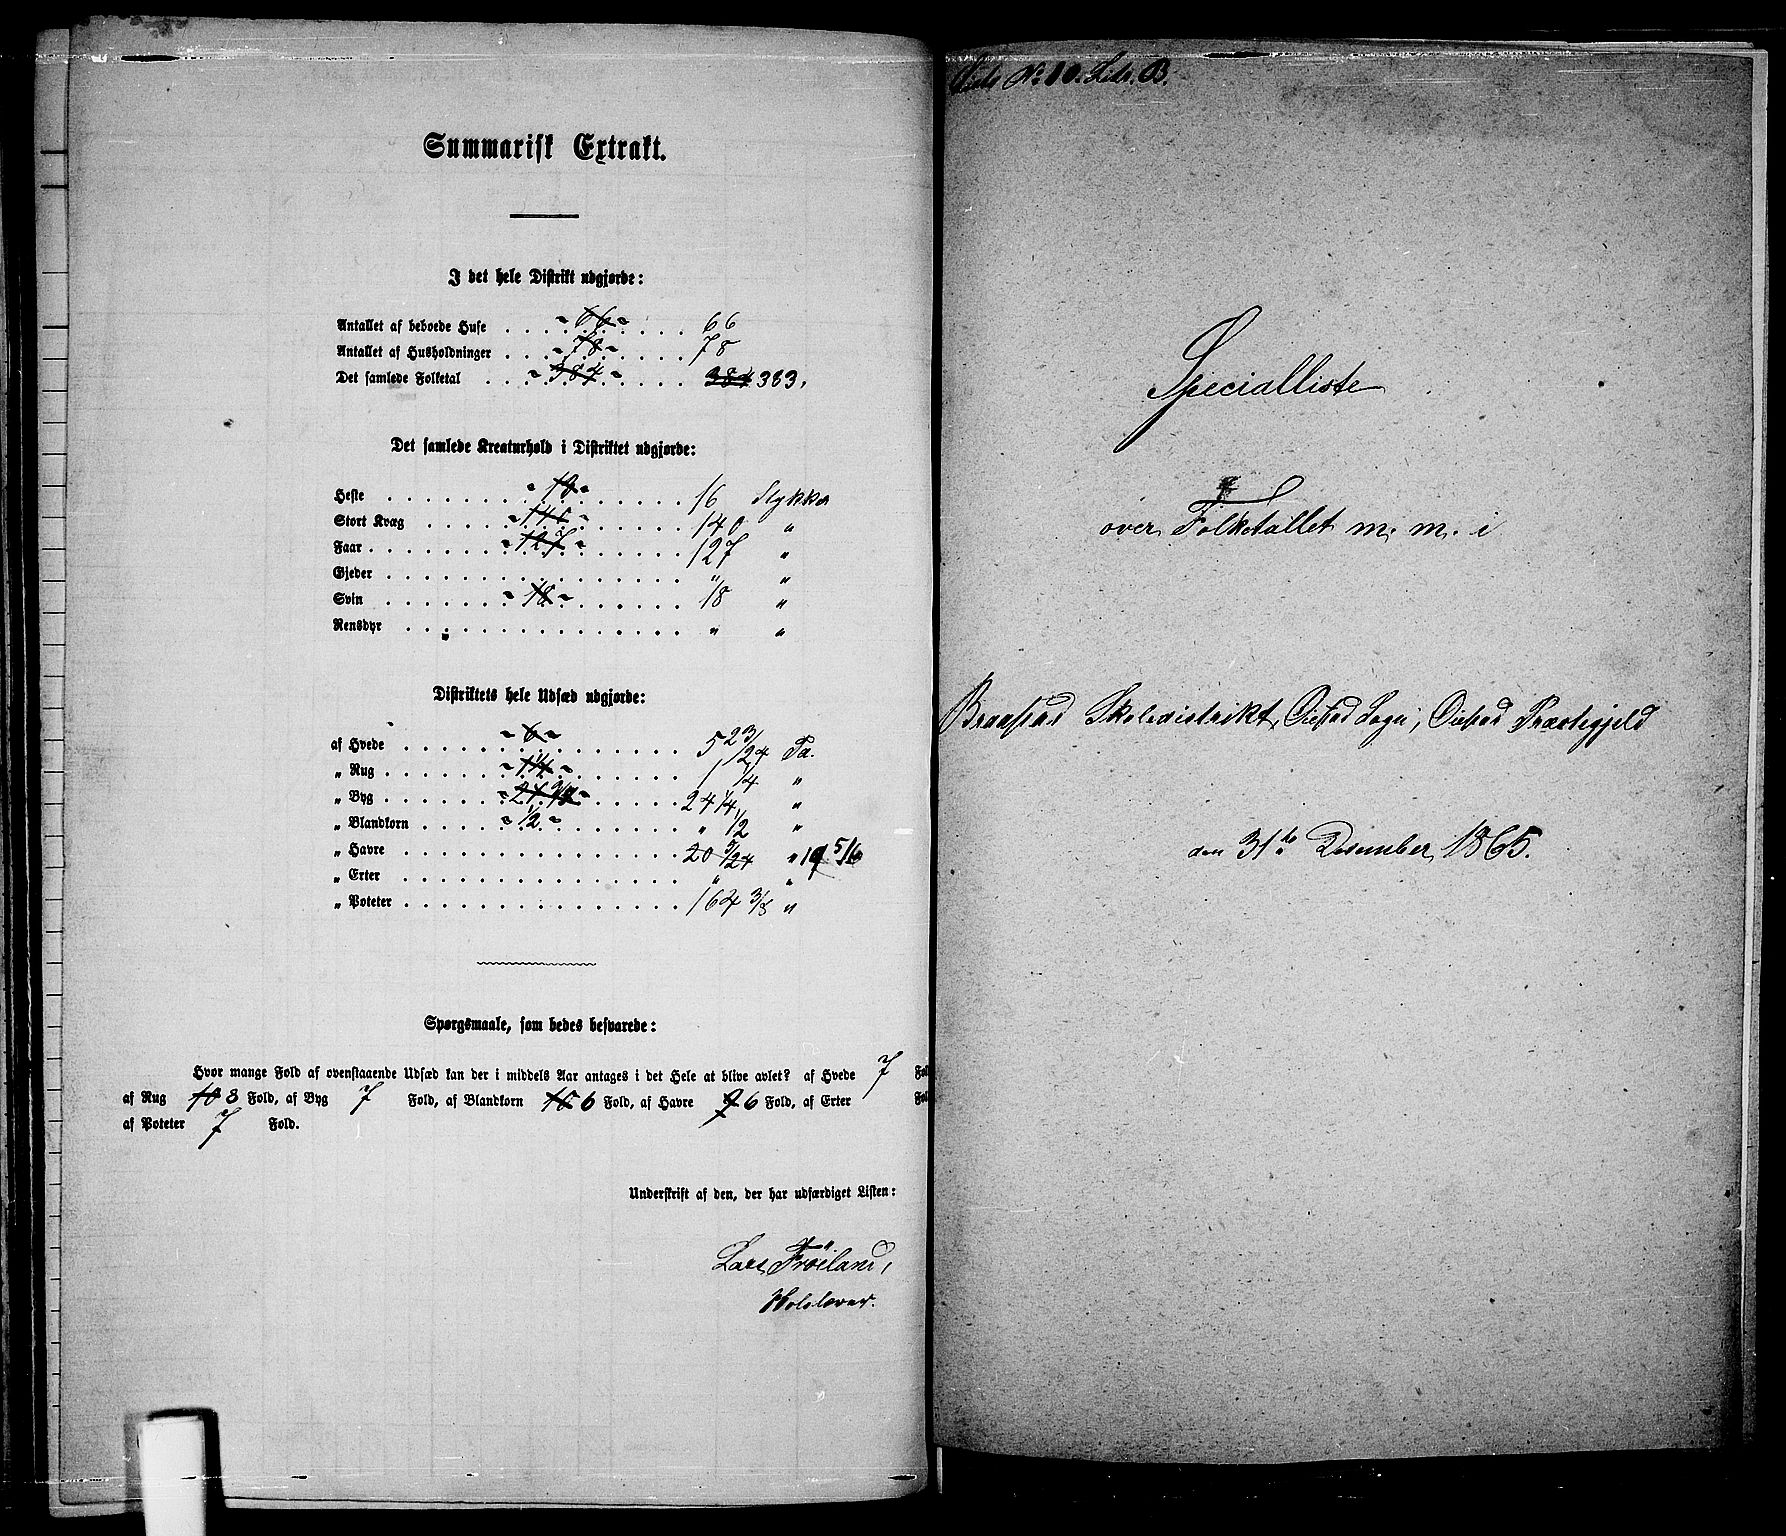 Summarisk Extrakt.
I det hele Distrikt udgjorde:
Antallet af beboede Huse . . . - 66 - . . . 66
Antallet af Husholdninger . . . - 78 - . . . 78
Det samlede Folketal . . . - 384 - . . . 384 383.
Det samlede Kreaturhold i Distriktet udgjorde:
Heste . . . 16 Stykker
Stort Kvæg . . . 140 "
Faar . . . - 127 - . . . 127 "
Gjeder . . . " "
Svin . . . - 18 - . . . 18 "
Rensdyr . . . " "
Distriktets hele Udsæd udgjorde:
af Hvede . . . - 6 - . . . 5 23/24 Tø.
„ Rug . . . - 1 1/4 - . . . 1 1/4 "
„ Byg . . . 24 1/4 "
„ Blandkorn . . . - 1/2 - . . . " 1/2 "
„ Havre . . . 20 5/24 " 19 5/6
„ Erter . . . " "
„ Poteter . . . 164 3/8 "
Spørgsmaale, som bedes besvarede:
Hvor mange Fold af ovenstaaende Udsæd kan der i middels Aar antages i det Hele at blive avlet? af Hvede 7 Fol
af Rug 10 8 Fold, af Byg 7 Fold, af Blandkorn 10 6 Fold, af Havre 9 6 Fold, af Erter Fol
af Poteter 7 Fold.
Underskrift af den, der har udfærdiget Listen:
Lars Fröiland,
Skolelærer.
No 10. Litr. B.
Specialliste
over Folketallet m. m. i
Braastad Skoledistrikt, Øiestad Sogn, Øiestad Præstegjeld
den 31te Desember 1865.